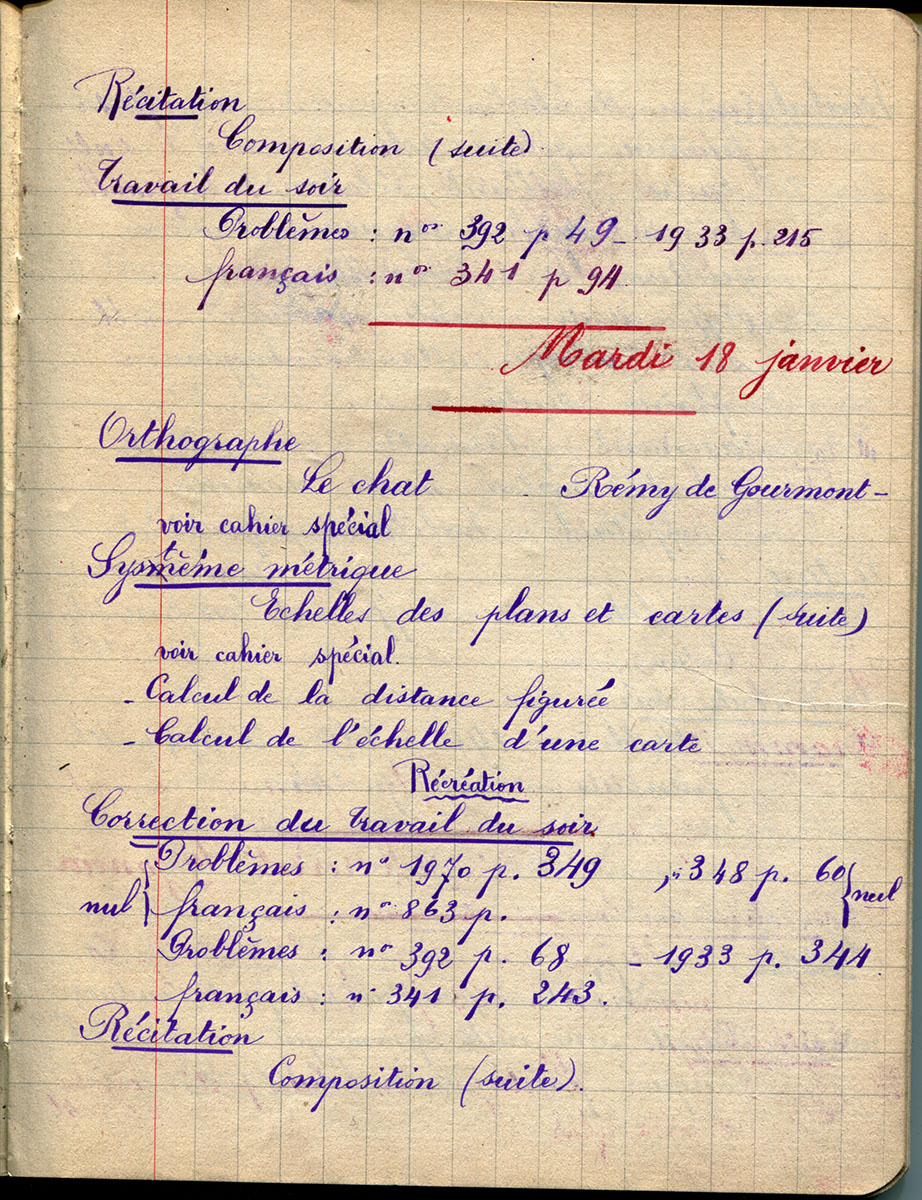 Récitation
Composition (suite)
Travail du soir
Problèmes : nos 392 p 49 - 1933 p. 215
français : nos 341 p 94
Mardi 18 janvier
Orthographe
Le chat Rémy de Gourmont -
voir cahier spécial
Système métrique
Echelles des plans et cartes (suite)
voir cahier spécial.
- Calcul de la distance figurée
- Calcul de l'échelle d'une carte
Récréation
Correction du travail du soir
Problèmes : no 1970 p. 349 , 348 p. 60
nul { français : no 863 p. } nul
Problèmes : no 392 p. 68 - 1933 p. 344
français : n 341 p. 243.
Récitation
Composition (suite).